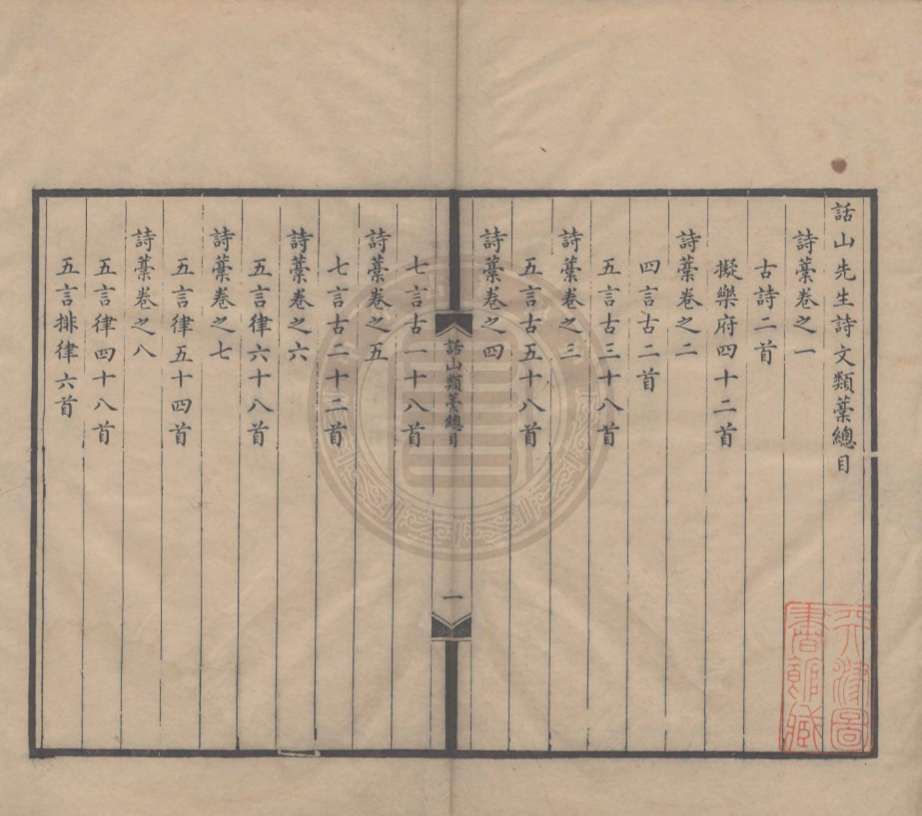 話山先生詩文類藁總目
詩藁卷之一
古詩二首
擬樂府四十二首
詩藁卷之二
四言古二首
五言古三十八首
詩藁卷之三
五言古五十八首
詩藁卷之四
話山類藁總目
一
七言古一十八首
詩藁卷之五
七言古二十二首
詩藁卷之六
五言律六十八首
詩藁卷之七
五言律五十四首
詩藁卷之八
五言律四十八首
五言排律六首
天津圖
書館藏